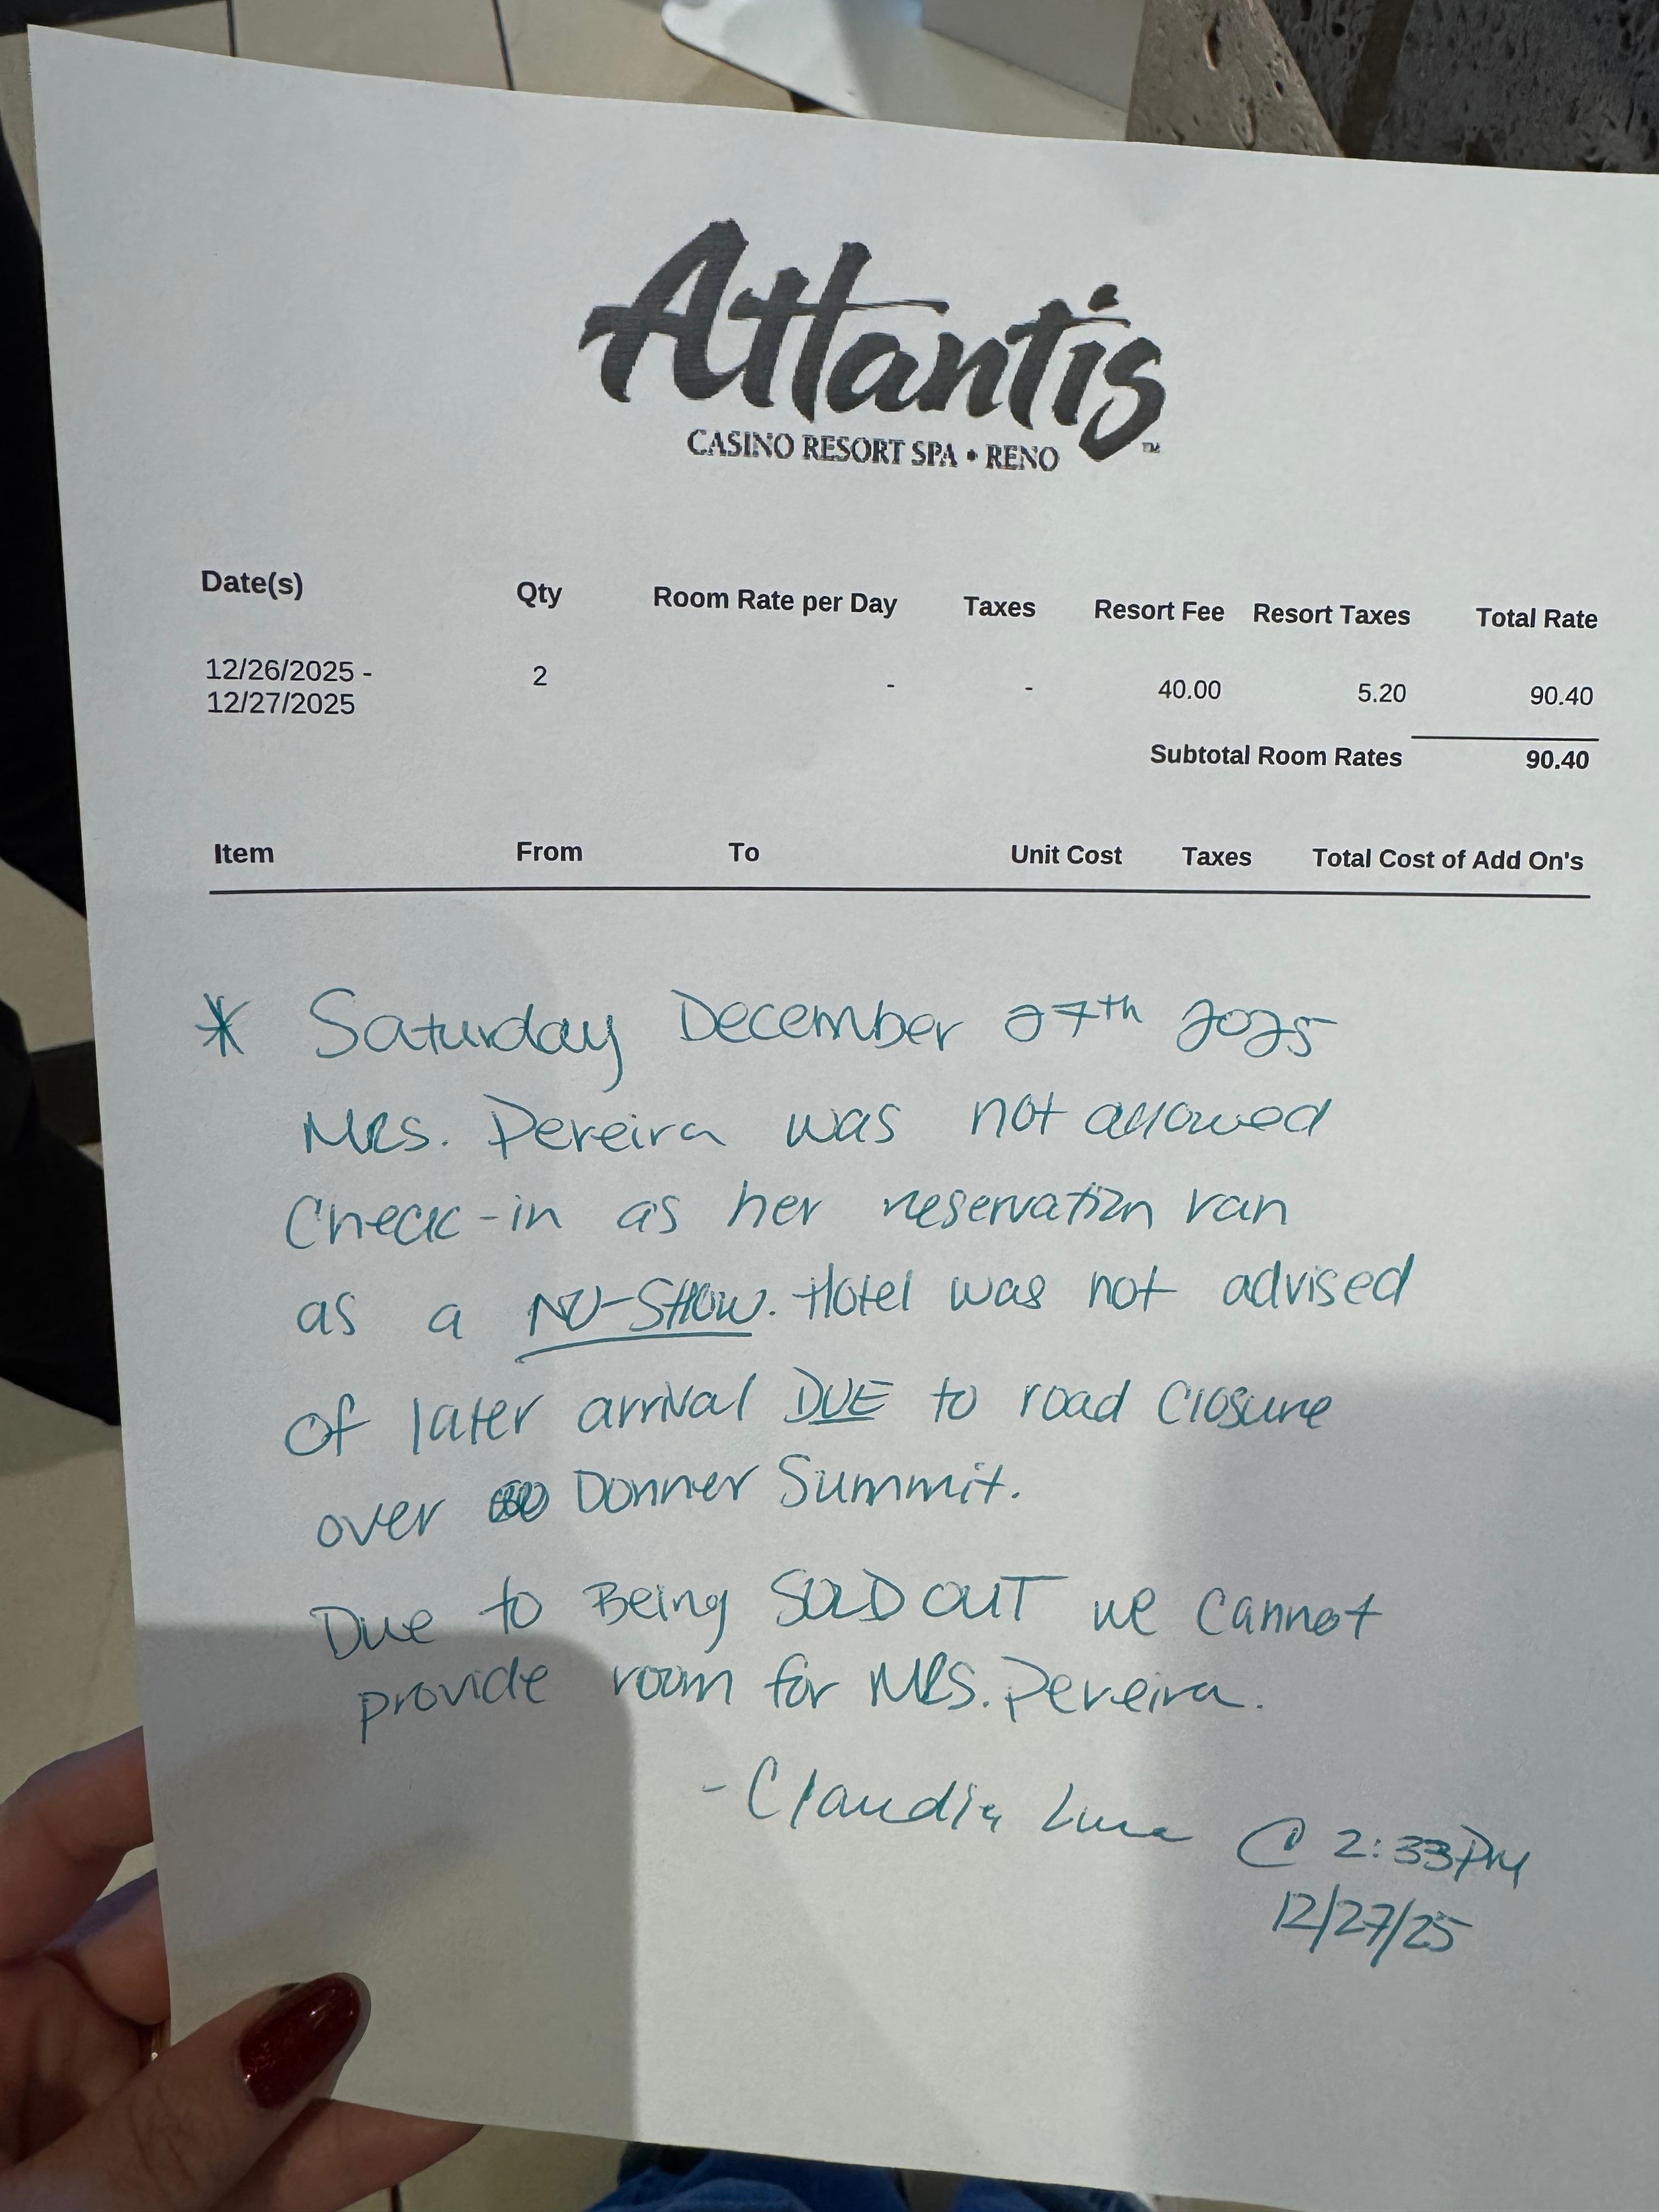 Atlantis
CASINO RESORT SPA • RENO ™
Date(s) Qty Room Rate per Day Taxes Resort Fee Resort Taxes Total Rate
12/26/2025 - 2 - - 40.00 5.20 90.40
12/27/2025
Subtotal Room Rates 90.40
Item From To Unit Cost Taxes Total Cost of Add On's
* Saturday December 27th 2025
MRS. Pereira was not allowed
Check-in as her reservation ran
as a NO-SHOW. Hotel was not advised
of later arrival DUE to road closure
over Donner Summit.
Due to Being SOLD OUT we cannot
provide room for MRS. Pereira.
- Claudia @ 2:33PM
12/27/25